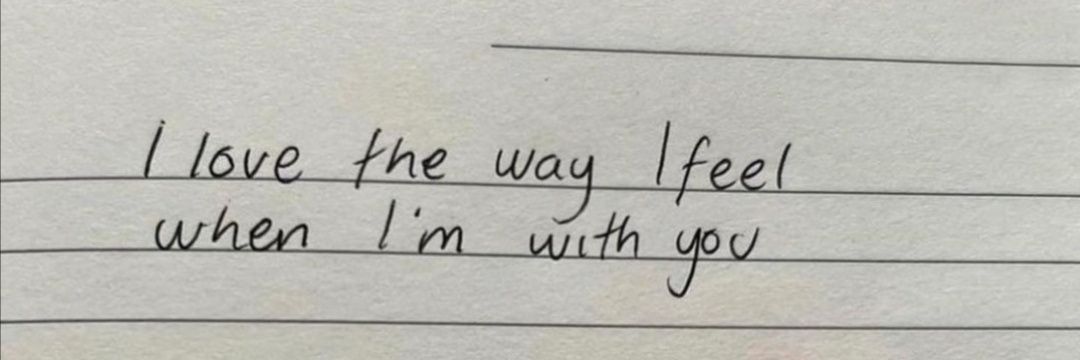 I love the way I feel
when I'm with you